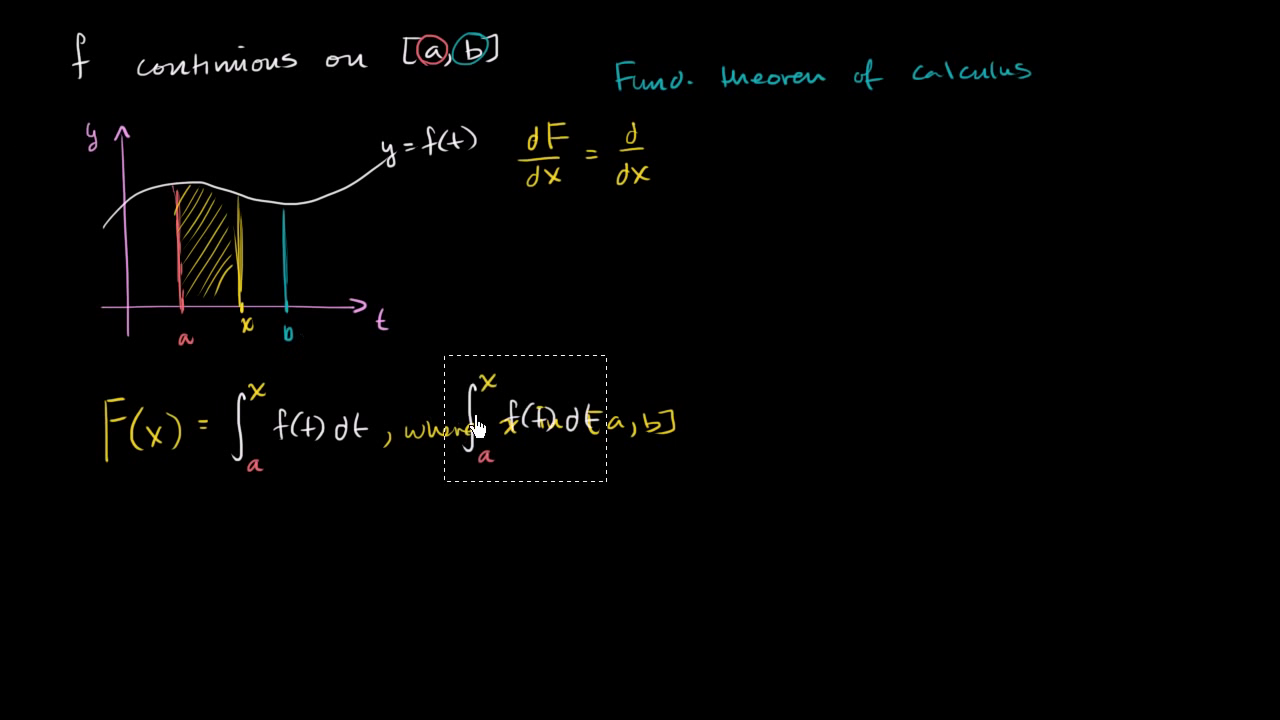 f continuous on [a, b]
Fund. theorem of calculus
y
y = f(t)
dF/dx = d/dx
a
x
b
t
F(x) = ∫ₐˣ f(t) dt, where x in [a, b]
∫ₐˣ f(t) dt